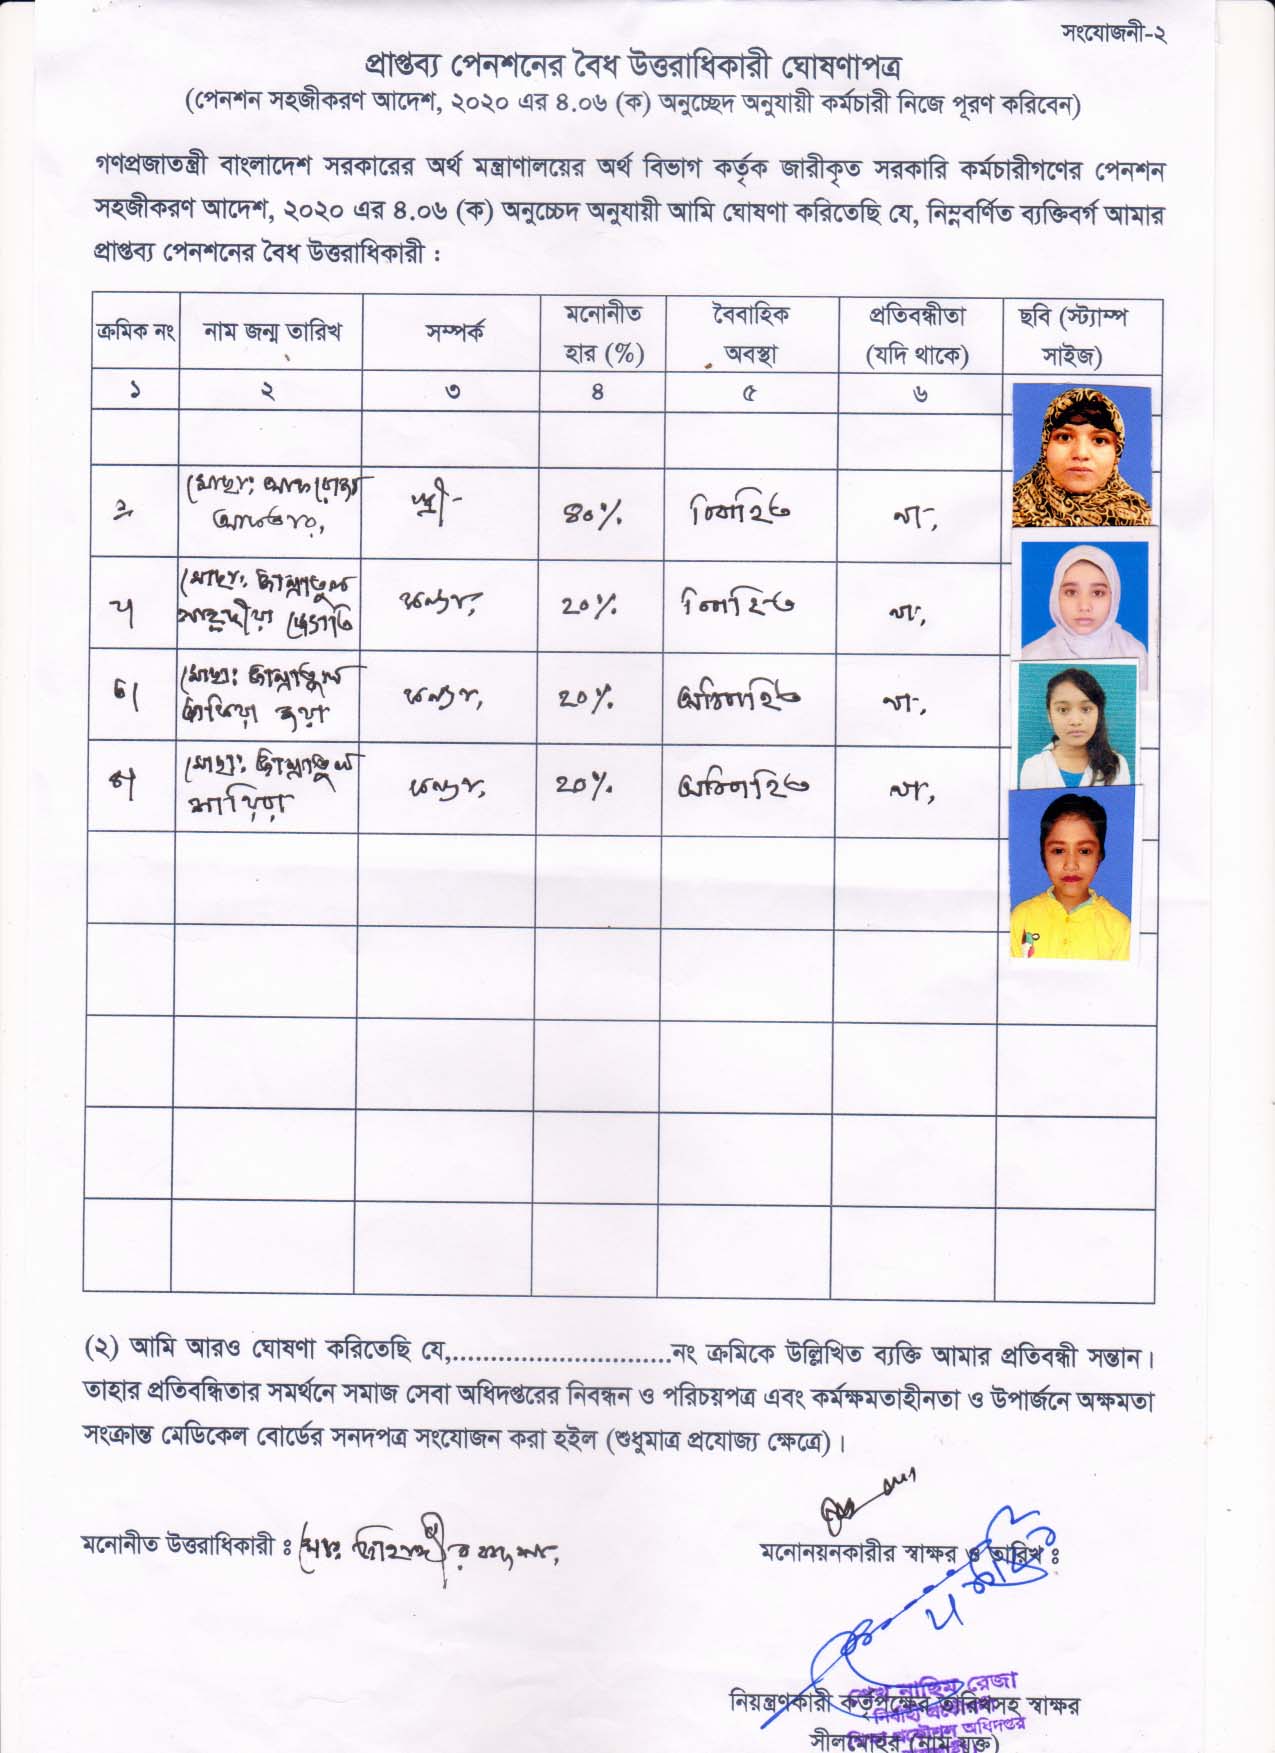 সংযোজনী-২
প্রাপ্তব্য পেনশনের বৈধ উত্তরাধিকারী ঘোষণাপত্র
(পেনশন সহজীকরণ আদেশ, ২০২০ এর ৪.০৬ (ক) অনুচ্ছেদ অনুযায়ী কর্মচারী নিজে পূরণ করিবেন)
গণপ্রজাতন্ত্রী বাংলাদেশ সরকারের অর্থ মন্ত্রাণালয়ের অর্থ বিভাগ কর্তৃক জারীকৃত সরকারি কর্মচারীগণের পেনশন
সহজীকরণ আদেশ, ২০২০ এর ৪.০৬ (ক) অনুচ্চেদ অনুযায়ী আমি ঘোষণা করিতেছি যে, নিম্নবর্ণিত ব্যক্তিবর্গ আমার
প্রাপ্তব্য পেনশনের বৈধ উত্তরাধিকারী :
ক্রমিক নং নাম জন্ম তারিখ সম্পর্ক মনোনীত হার (%) বৈবাহিক অবস্থা প্রতিবন্ধীতা (যদি থাকে) ছবি (স্ট্যাম্প সাইজ)
১ ২ ৩ ৪ ৫ ৬
মোছা: আফরোজা
আক্তার, স্ত্রী- ৪০% বিবাহিত না,
মোছা: জান্নাতুল
২০% বিবাহিত না,
মোছা: জান্নাতুল
২০% অবিবাহিত না,
মোছা: জান্নাতুল
২০% অবিবাহিত না,
(২) আমি আরও ঘোষণা করিতেছি যে,..............................নং ক্রমিকে উল্লিখিত ব্যক্তি আমার প্রতিবন্ধী সন্তান।
তাহার প্রতিবন্ধিতার সমর্থনে সমাজ সেবা অধিদপ্তরের নিবন্ধন ও পরিচয়পত্র এবং কর্মক্ষমতাহীনতা ও উপার্জনে অক্ষমতা
সংক্রান্ত মেডিকেল বোর্ডের সনদপত্র সংযোজন করা হইল (শুধুমাত্র প্রযোজ্য ক্ষেত্রে)।
মনোনীত উত্তরাধিকারী : মোঃ
মনোনয়নকারীর স্বাক্ষর ও তারিখ :
নাছিম রেজা
নিয়ন্ত্রণকারী কর্তৃপক্ষের তারিখসহ স্বাক্ষর
অধিদপ্তর
সীলমোহর (নাম যুক্ত)